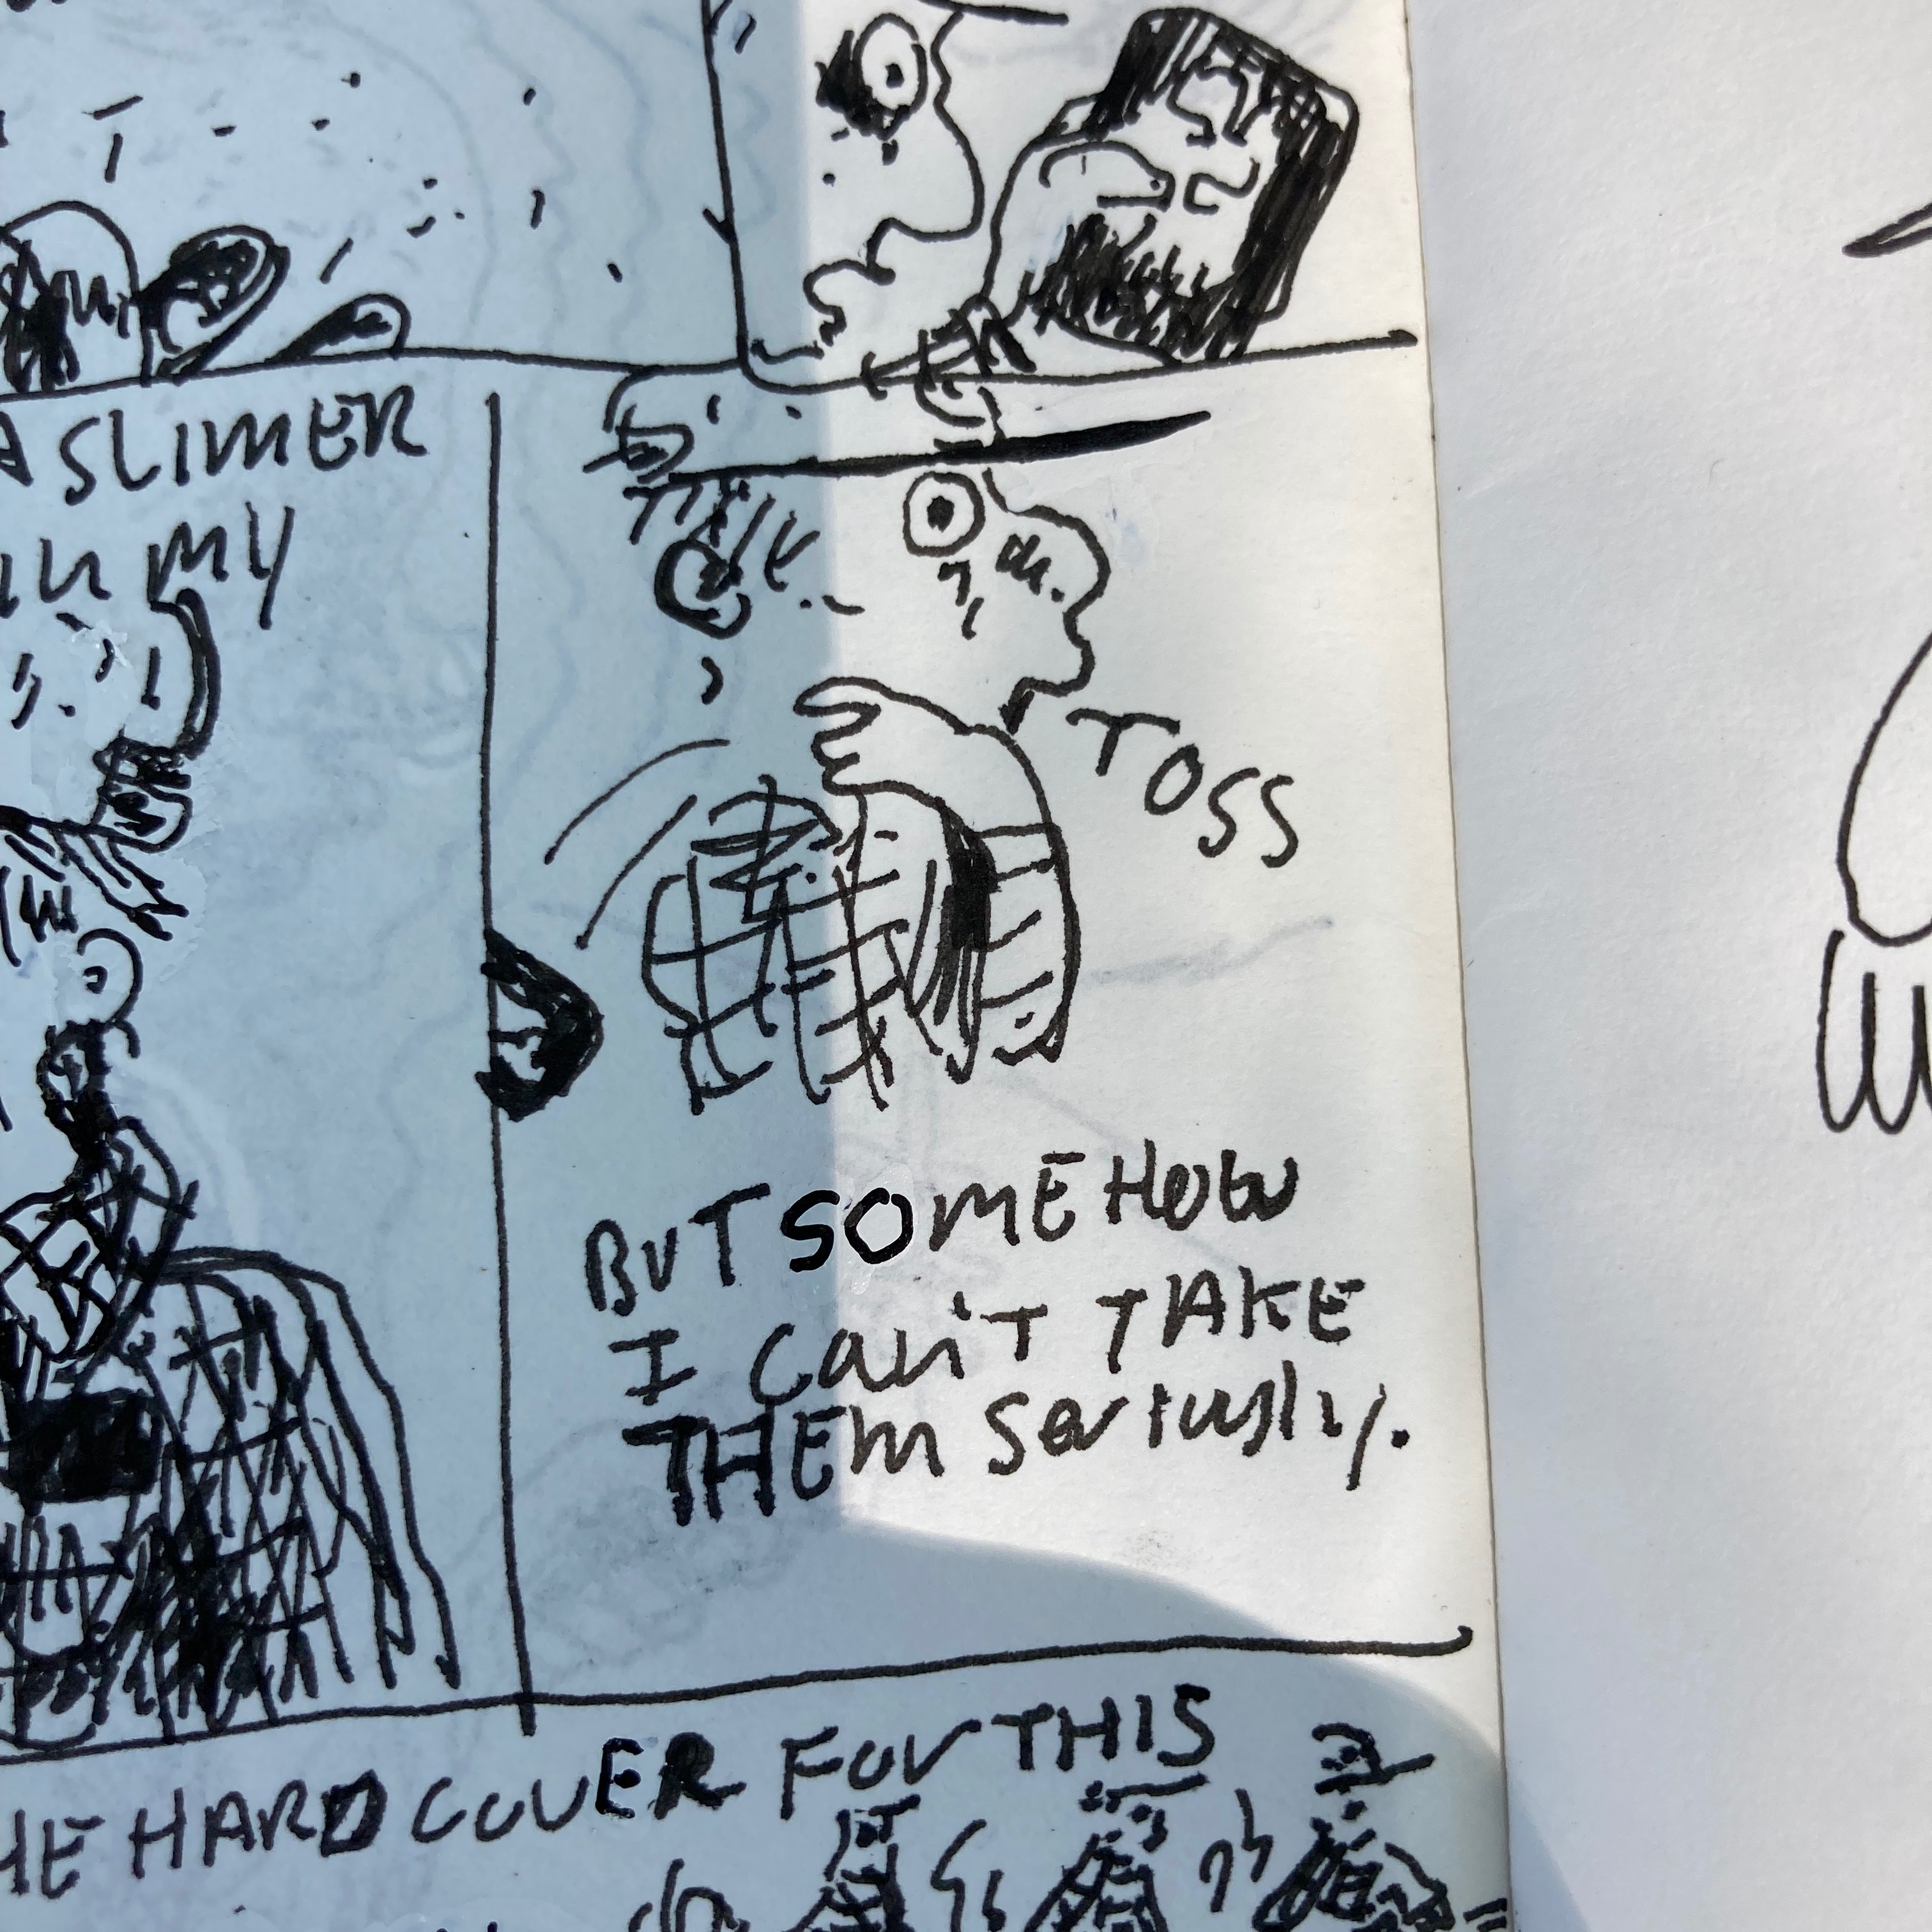 A SLIMER
IN MY
TOSS
BUT SOMEHOW
I can't TAKE
THEM seriusly.
HE HARD COVER FOR THIS